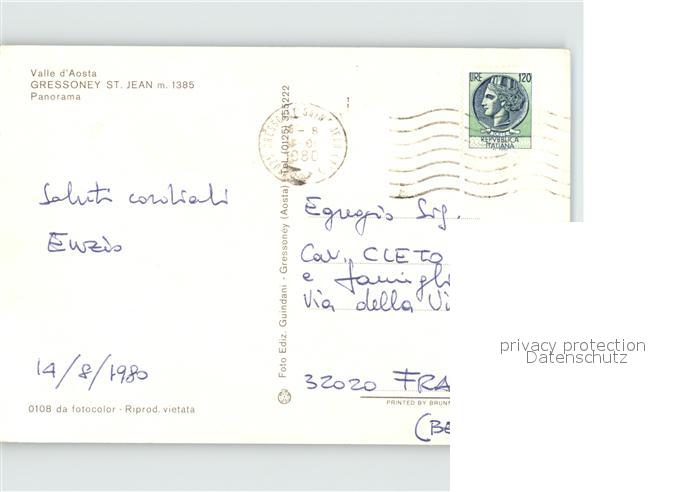 Valle d'Aosta
GRESSONEY ST. JEAN m. 1385
Panorama
Saluti cordiali
Enzio
14/8/1980
0108 da fotocolor - Riprod. vietata
Foto Ediz. Guindani - Gressoney (Aosta) - Tel. (0125) 355222
LIRE 120
POSTE
REPVBBLICA
ITALIANA
Egregio Sig.
Cav. CLETO
e famigli
Via della Vi
32020 FRA
PRINTED BY BRUN
(BE
privacy protection
Datenschutz